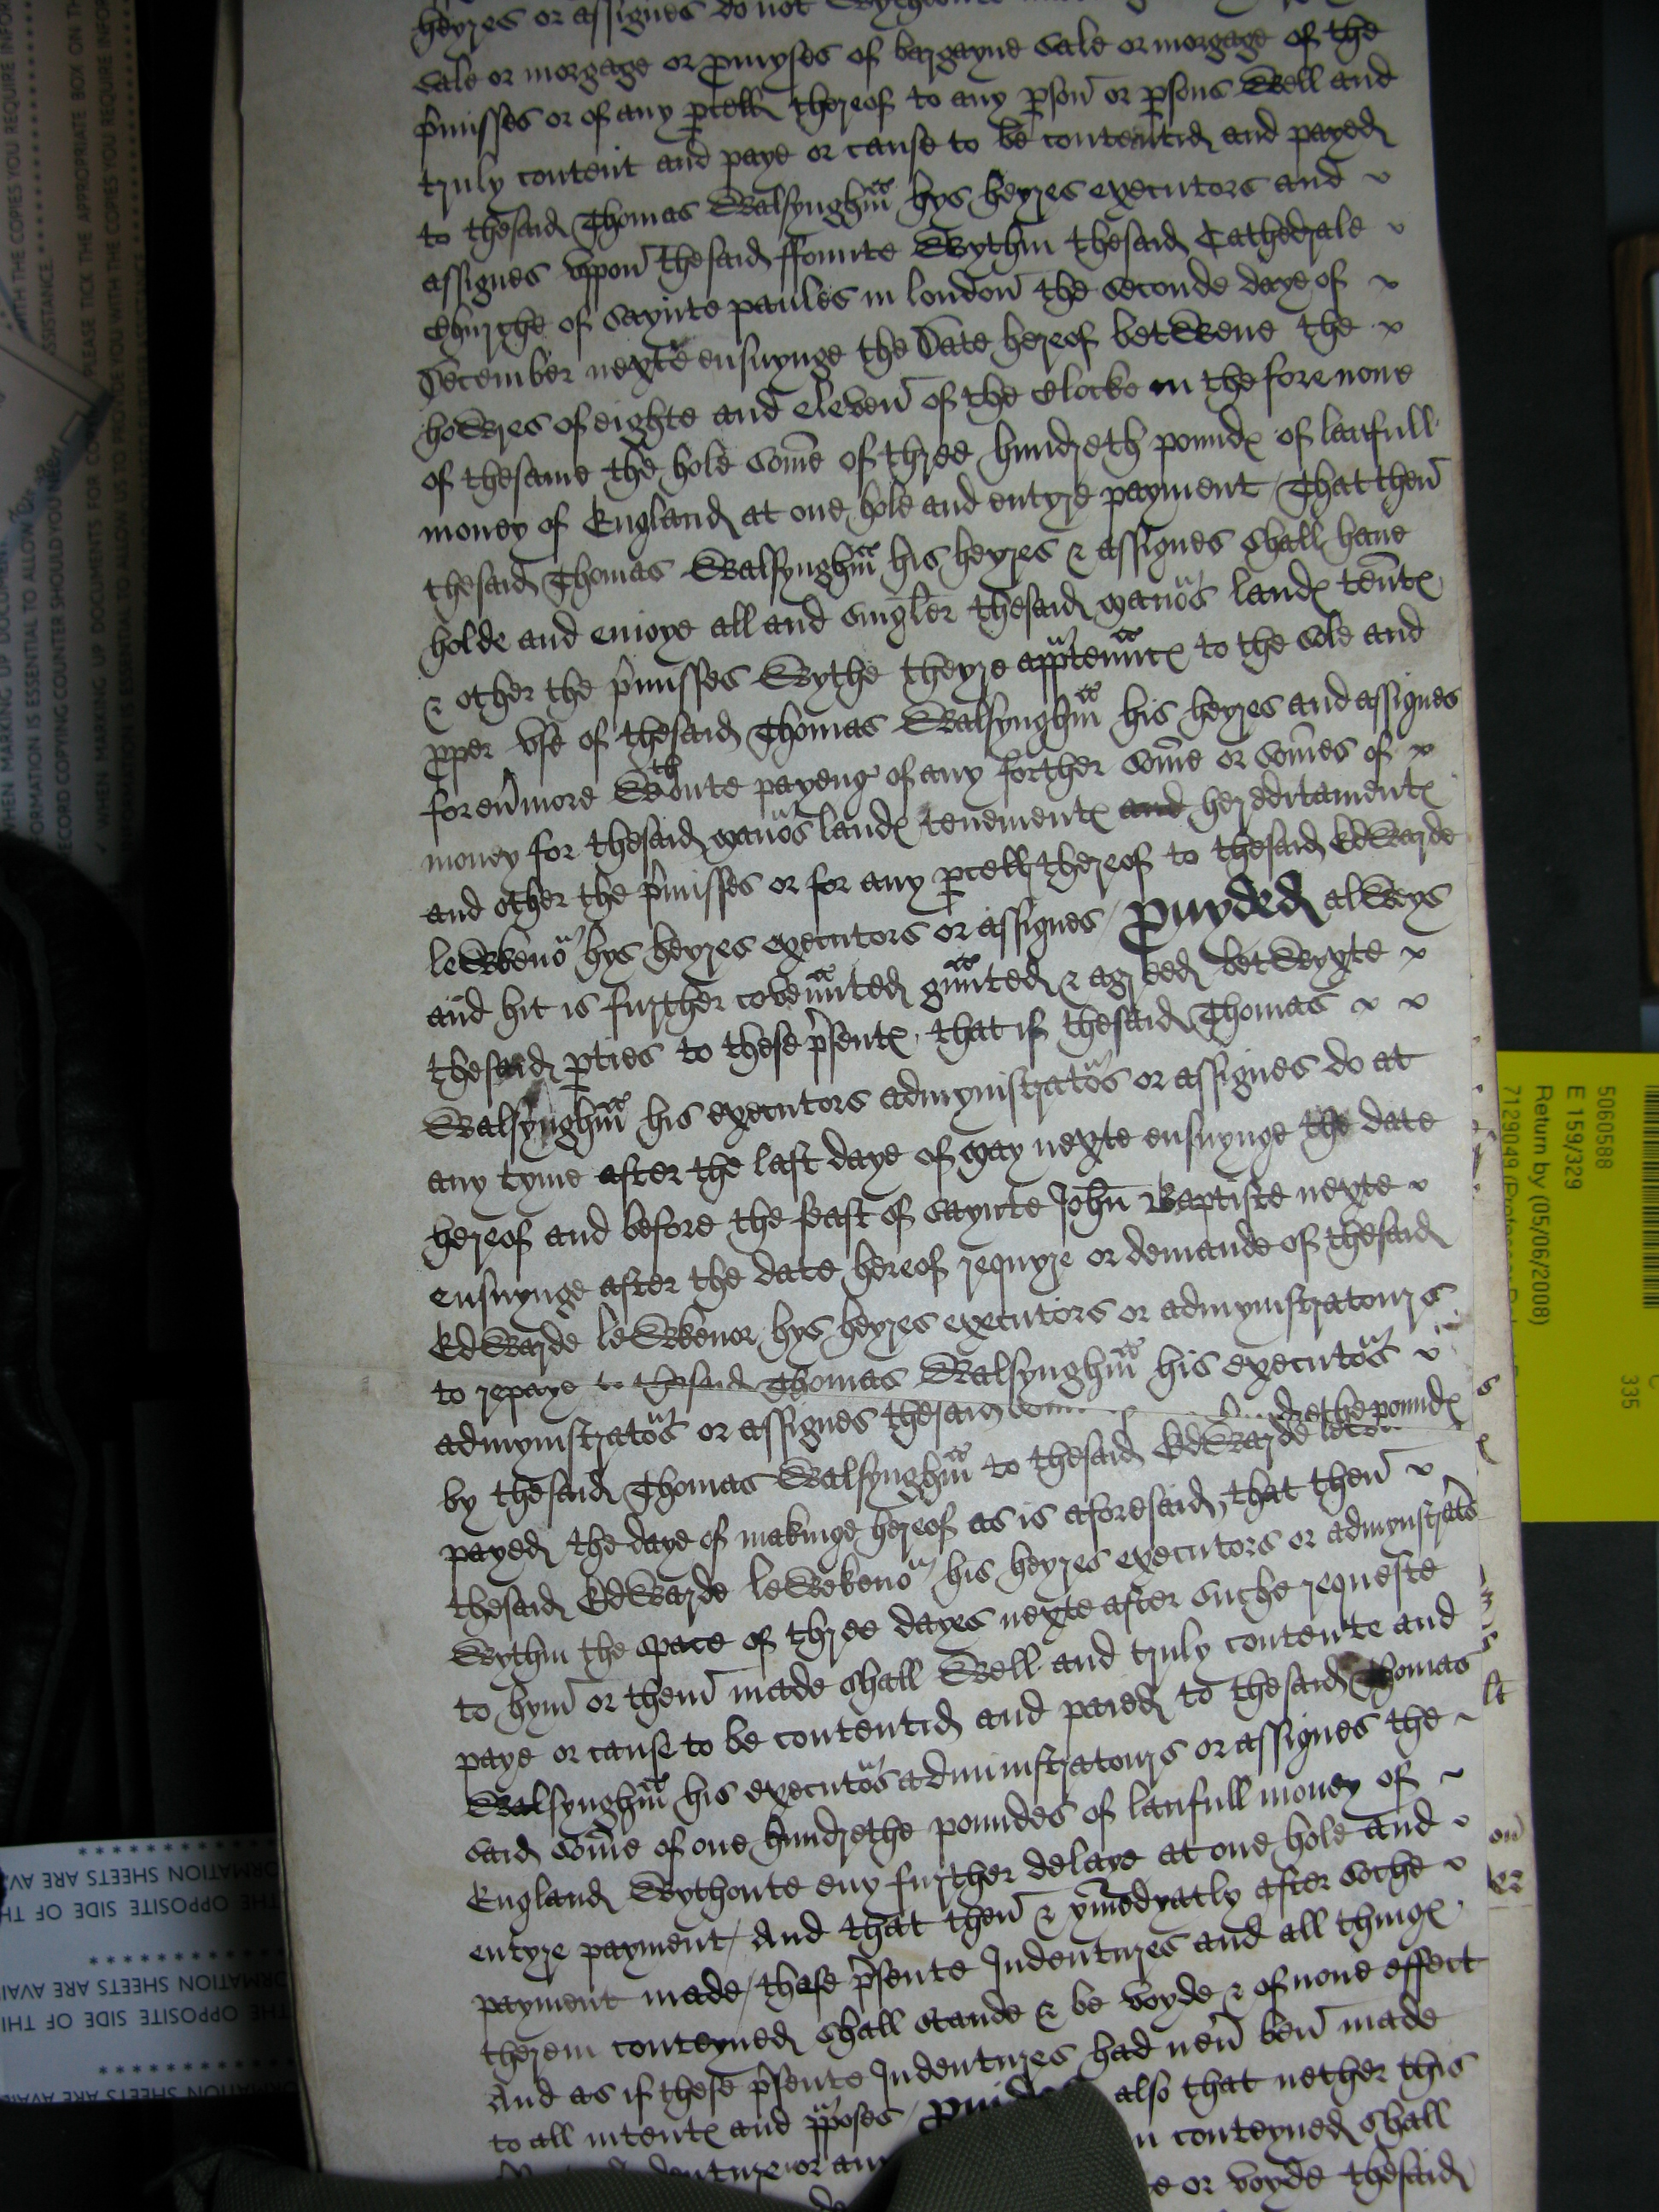 heyres or assignes do not
sale or morgage or pmyses of bargayne sale or morgage of the
pmisses or of any pcell thereof to any pson or psons well and
truly content and paye or cause to be contentid and payed
to thesaid Thomas Walsynghm hys heyres executors and
assignes vppon thesaid ffounte wythin thesaid Cathedrale
churche of Saynte paules in london the seconde daye of
December nexte ensuynge the date hereof betwene the
howres of eighte and eleven of the clocke in the forenone
of thesame the hole some of three hundreth poundes of laufull
money of England at one hole and entyre payment / That then
thesaid Thomas Walsynghm his heyres & assignes shall haue
holde and enioye all and singler thesaid manors landes tentes
& other the pmisses wythe theyre apptennces to the sole and
pper vse of thesaid Thomas Walsynghm his heyres and assignes
foreumore wthoute payeng of any forther some or somes of
money for thesaid manors landes tenementes and heredditamentes
and other the pmisses or for any pcell thereof to thesaid Edwarde
lewkenor hys heyres executors or assignes / Puyded alweys
and hit is further covennted gunted & agreed betwyxte
thesaid pties to these psentes that if thesaid Thomas
Walsynghm his executors admynistrators or assignes do at
any tyme after the last daye of may nexte ensuynge the date
hereof and before the feast of saynte John Baptiste nexte
ensuynge after the date hereof requyre or demande of thesaid
Edwarde lewkenor hys heyres executors or admynistratours
to repaye to thesaid Thomas Walsynghm his executors
admynistrators or assignes thesaid hundrethe poundes
by thesaid Thomas Walsynghm to thesaid Edwarde
payed the daye of makinge hereof as is aforesaid, that then
thesaid Edwarde lewekenor his heyres executors or admynstrators
wythin the space of three dayes nexte after suche requeste
to hym or them made shall well and truly contente and
paye or cause to be contentid and paied to thesaid Thomas
Walsynghm his executors admimistratours or assignes the
said some of one hundrethe poundes of laufull money of
England wythoute eny further delaye at one hole and
entyre payment / And that then & ymedyatly after soche
payment made / these psente Indentures and all thinges
therein conteyned shall stande & be voyde & of none effect
And as if these psente Indentures had neu ben made
to all intentes and pposes / also that nether this
conteyned shall
or voyde thesaid
WHEN MARKING UP DOCUMENTS FOR
INFORMATION IS ESSENTIAL TO ALLOW US TO PROVIDE YOU WITH THE COPIES YOU REQUIRE
PLEASE TICK THE APPROPRIATE BOX ON
RECORD COPYING COUNTER SHOULD YOU NEED
ASSISTANCE
5060588
E 159/329
Return by (05/06/2008)
335
THE OPPOSITE SIDE OF THI
INFORMATION SHEETS ARE AVAI